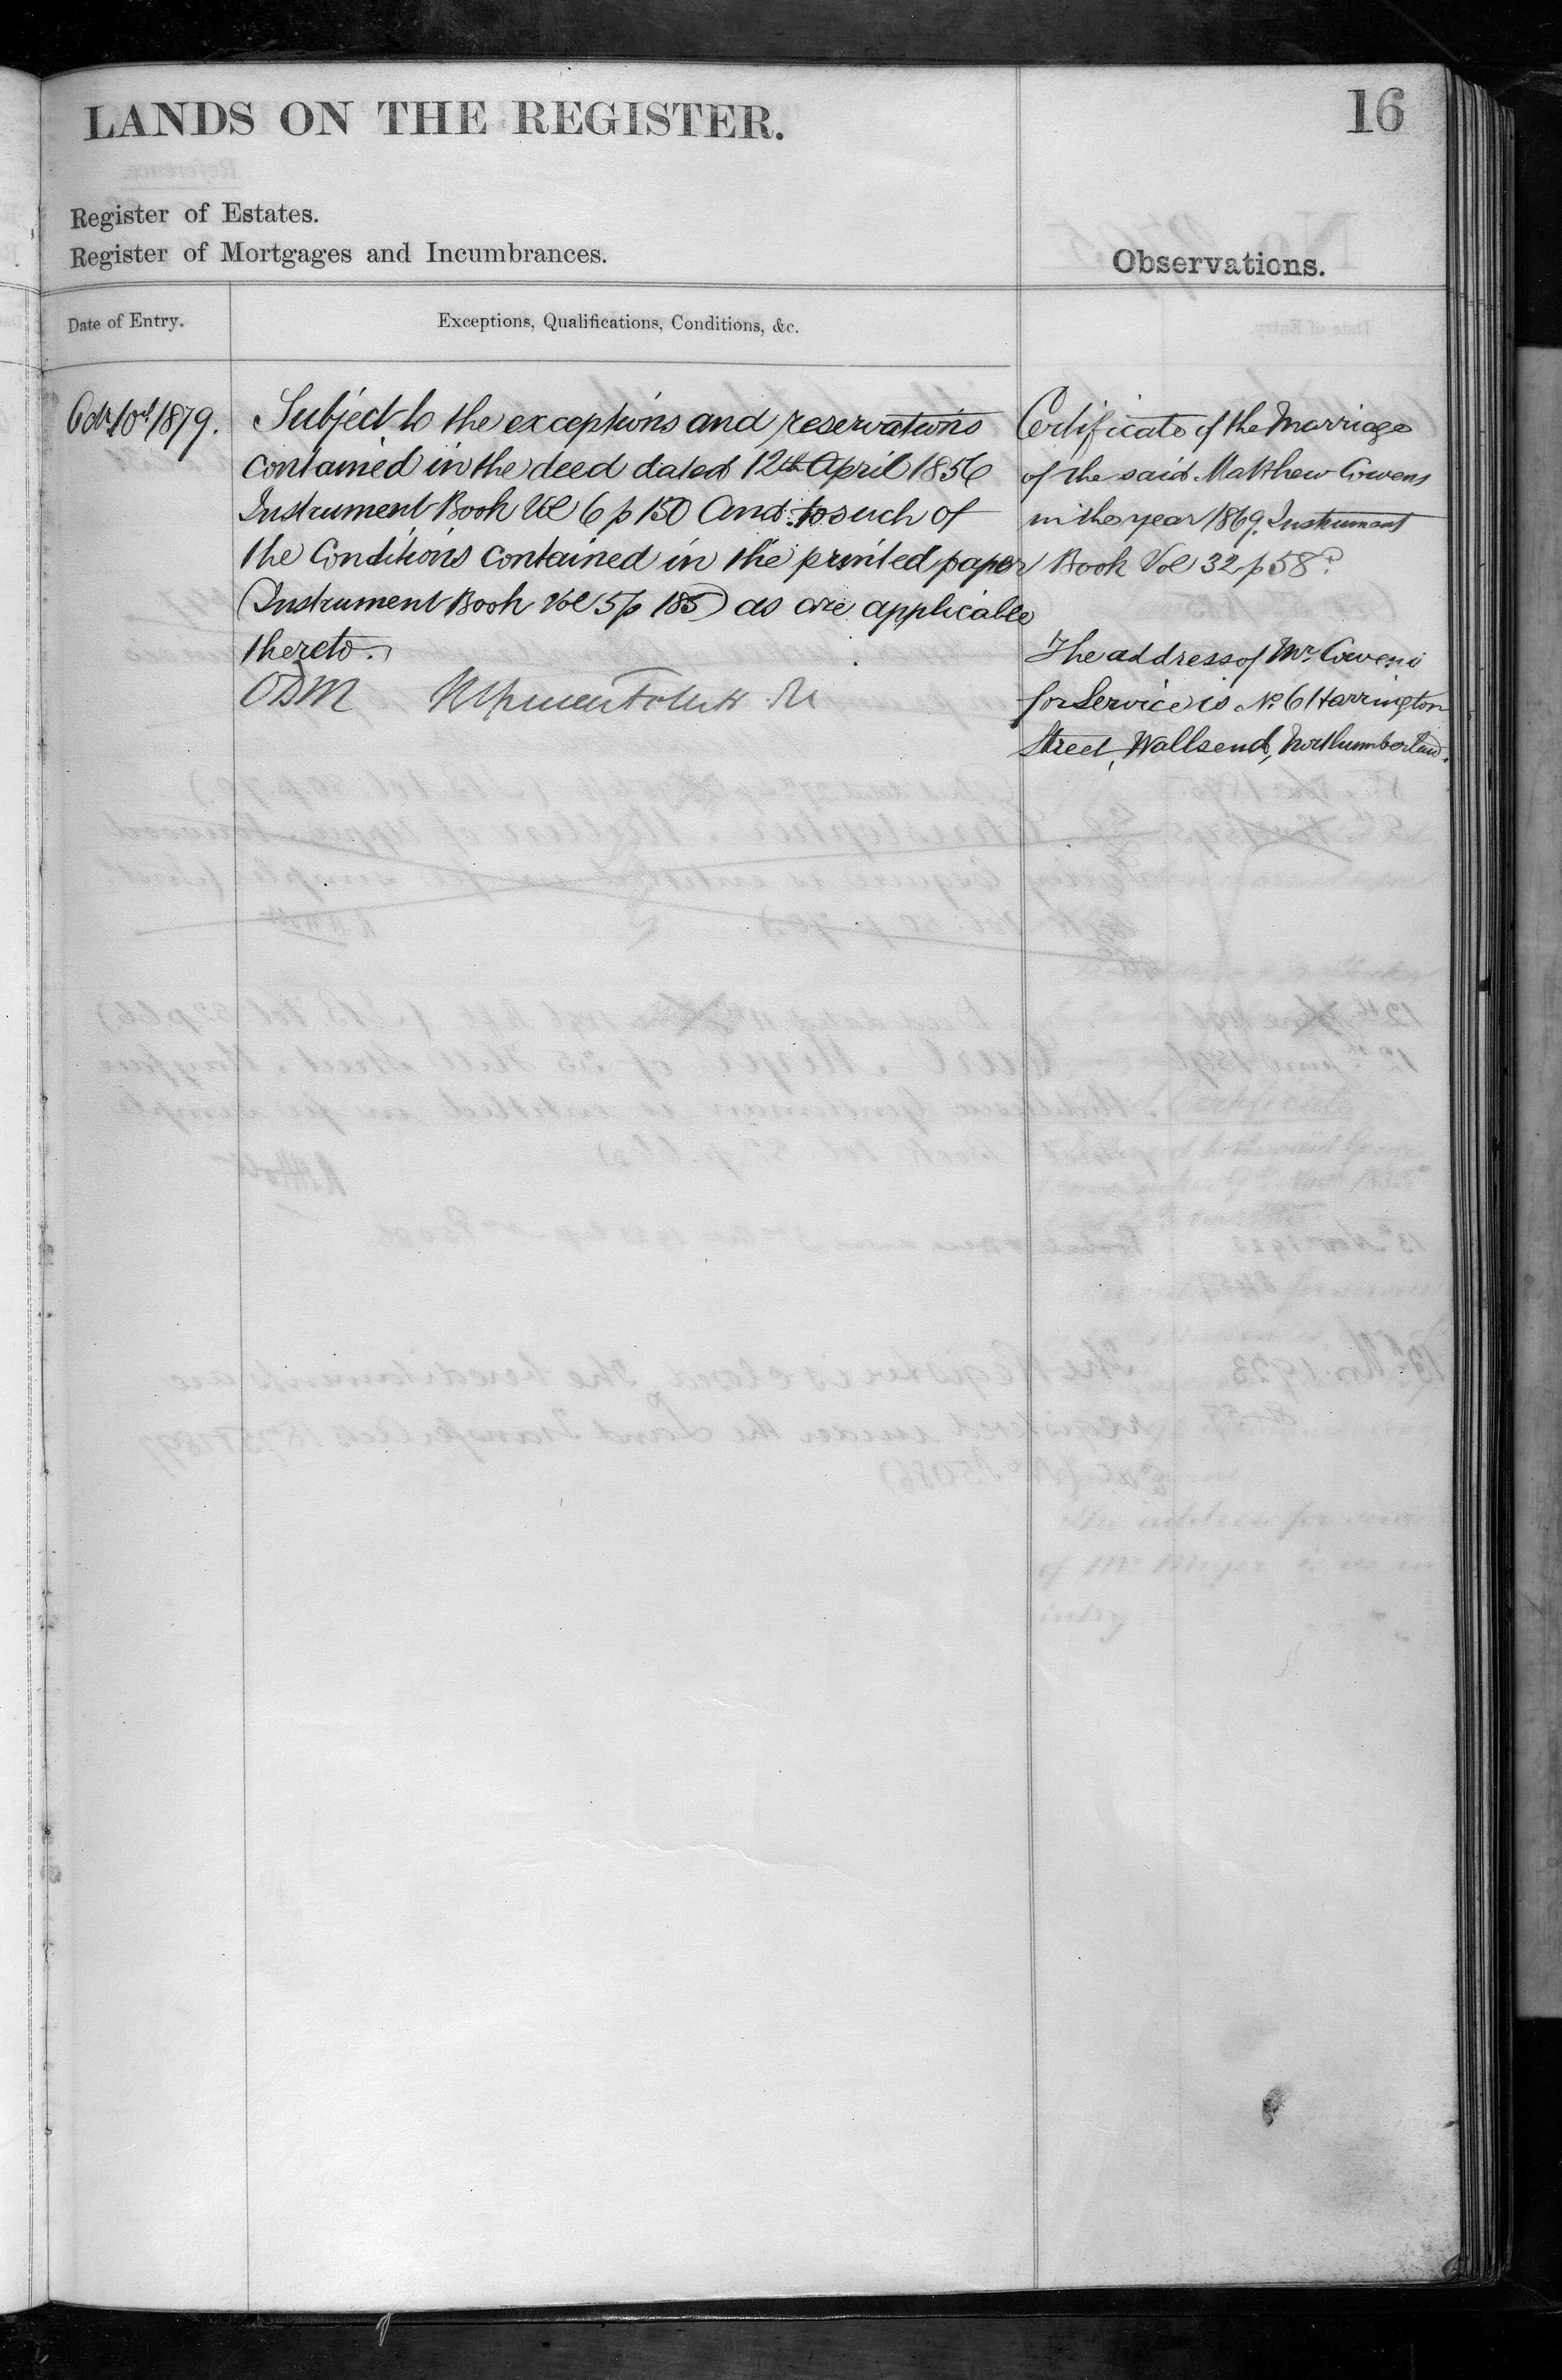 LANDS ON THE REGISTER.
16
Register of Estates.
Register of Mortgages and Incumbrances.
Observations.
Date of Entry.
Exceptions, Qualifications, Conditions, &c.
1879.
Subject to the exceptions and reservations
contained in the deed dated 12th April 1856
Instrument Book Vol 6 p 150 And to such of
the Conditions contained in the printed paper
(Instrument Book Vol 5 p 185) as are applicable
thereto.
Certificate of the Marriage
of the said Matthew Cowens
in the year 1869. Instrument
Book Vol 32 p 58
The address of Mr. Cowens
for Service is No. 6 Harrington
Street, Wallsend, Northumberland.